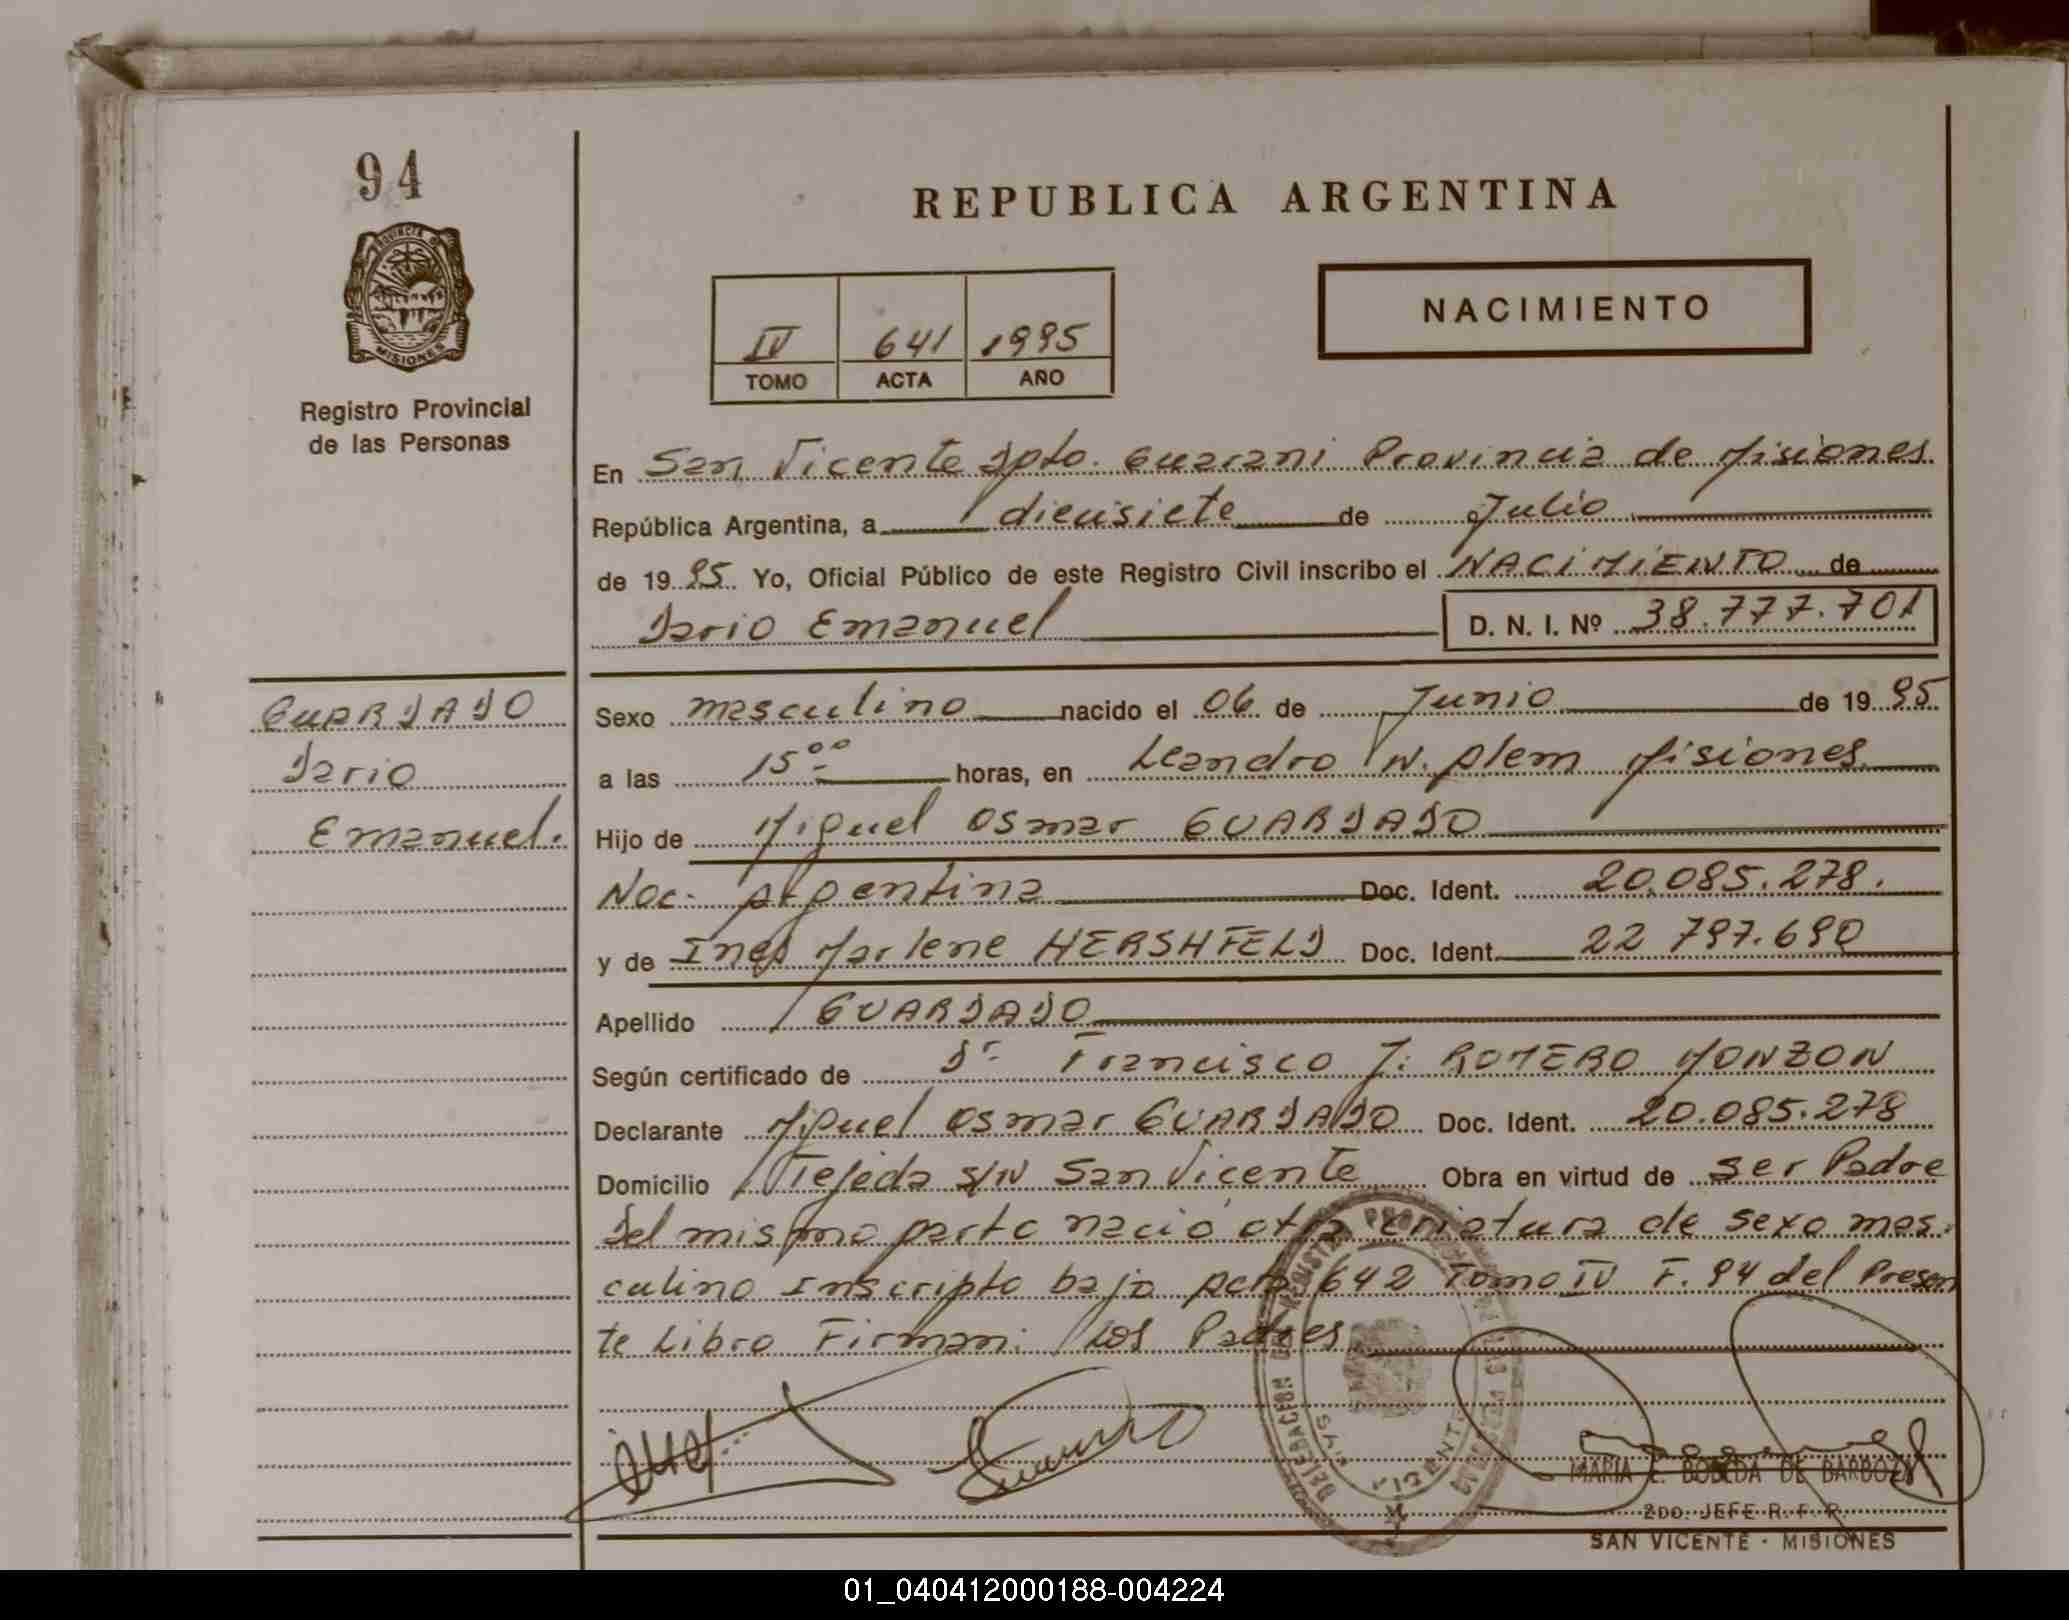 94
PROVINCIA DE
MISIONES
Registro Provincial
de las Personas
REPUBLICA ARGENTINA
IV 641 1995
TOMO ACTA AÑO
NACIMIENTO
En San Vicente Dpto. Guarani Provincia de Misiones
República Argentina, a diecisiete de Julio
de 1995 Yo, Oficial Público de este Registro Civil inscribo el NACIMIENTO de
Dario Emanuel D. N. I. Nº 38.777.701
GUARDADO
Dario
Emanuel.
Sexo masculino nacido el 06 de Junio de 1995
a las 15°° horas, en Leandro N. Alem Misiones
Hijo de Miguel Osmar GUARDADO
Nac. Argentina Doc. Ident. 20.085.278.
y de Ines Marlene HERSHFELD Doc. Ident. 22 797.690
Apellido GUARDADO
Según certificado de Dr. Francisco J. ROMERO MONZON
Declarante Miguel Osmar GUARDADO Doc. Ident. 20.085.278
Domicilio Tejeda S/N San Vicente Obra en virtud de ser Padre
Del mismo parto nació otra criatura de sexo mas-
culino Inscripto bajo Acta 642 Tomo IV F. 94 del Presen
te Libro Firman: Los Padres
MARIA E. BOBEDA DE BARBOZA
2DO. JEFE R. F. P.
SAN VICENTE - MISIONES
01_040412000188-004224